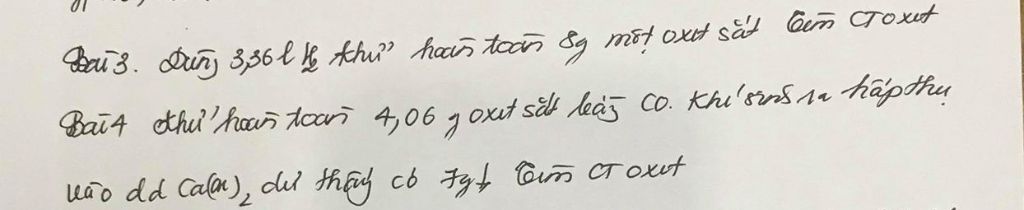 Bài 3. Dùng 3,36 l H2 khử hoàn toàn 8g một oxit sắt tìm CT oxit
Bài 4 khử hoàn toàn 4,06 g oxit sắt bằng CO. Khí sinh ra hấp thụ
vào dd Ca(OH)2 dư thấy có 7g↓ tìm CT oxit